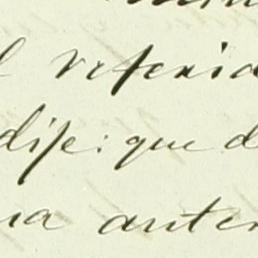 l referid
dise: que d
na anter